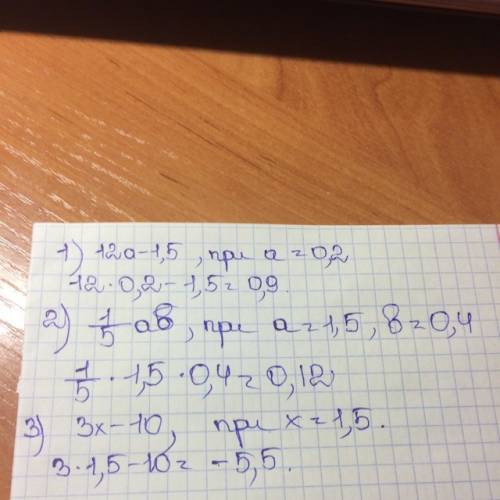 1) 12a-1,5, при a=0,2
12·0,2-1,5=0,9.
2) 1/5 aв, при a=1,5, в=0,4
1/5·1,5·0,4=0,12
3) 3x-10, при x=1,5.
3·1,5-10=-5,5.